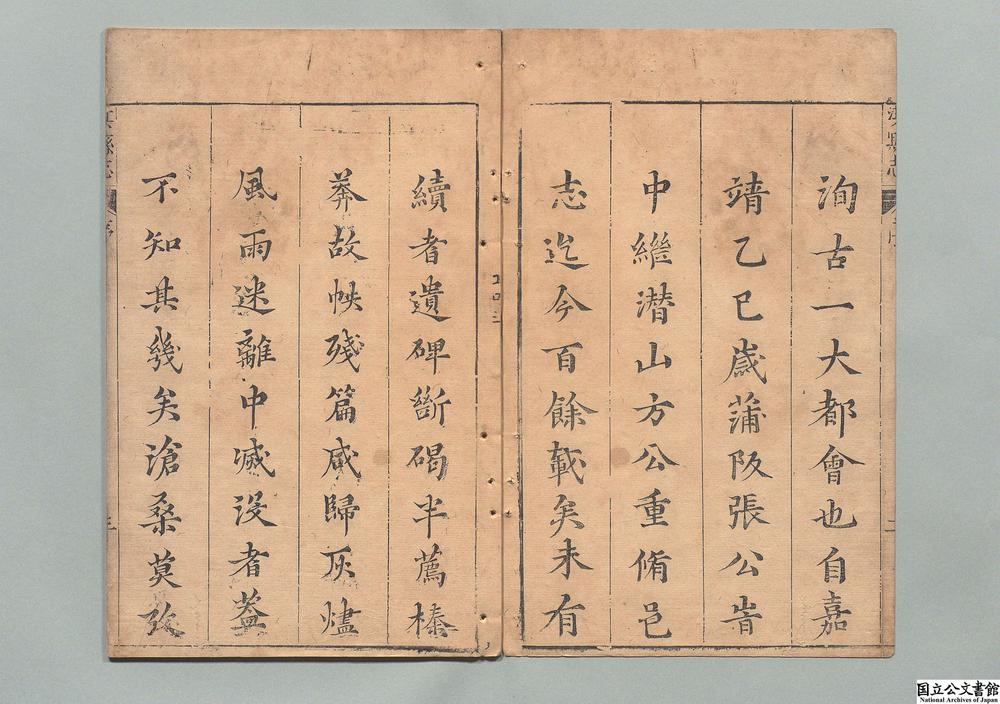 洵古一大都會也自嘉
靖乙巳歲蒲阪張公

中繼潜山方公重脩邑
志迄今百餘載矣未有
續者遺碑斷碣半薦榛
莽故帙殘篇咸歸灰燼
風雨迷離中滅沒者葢
不知其幾矣滄桑莫攷
縣志
二
三
国立公文書館
National Archives of Japan